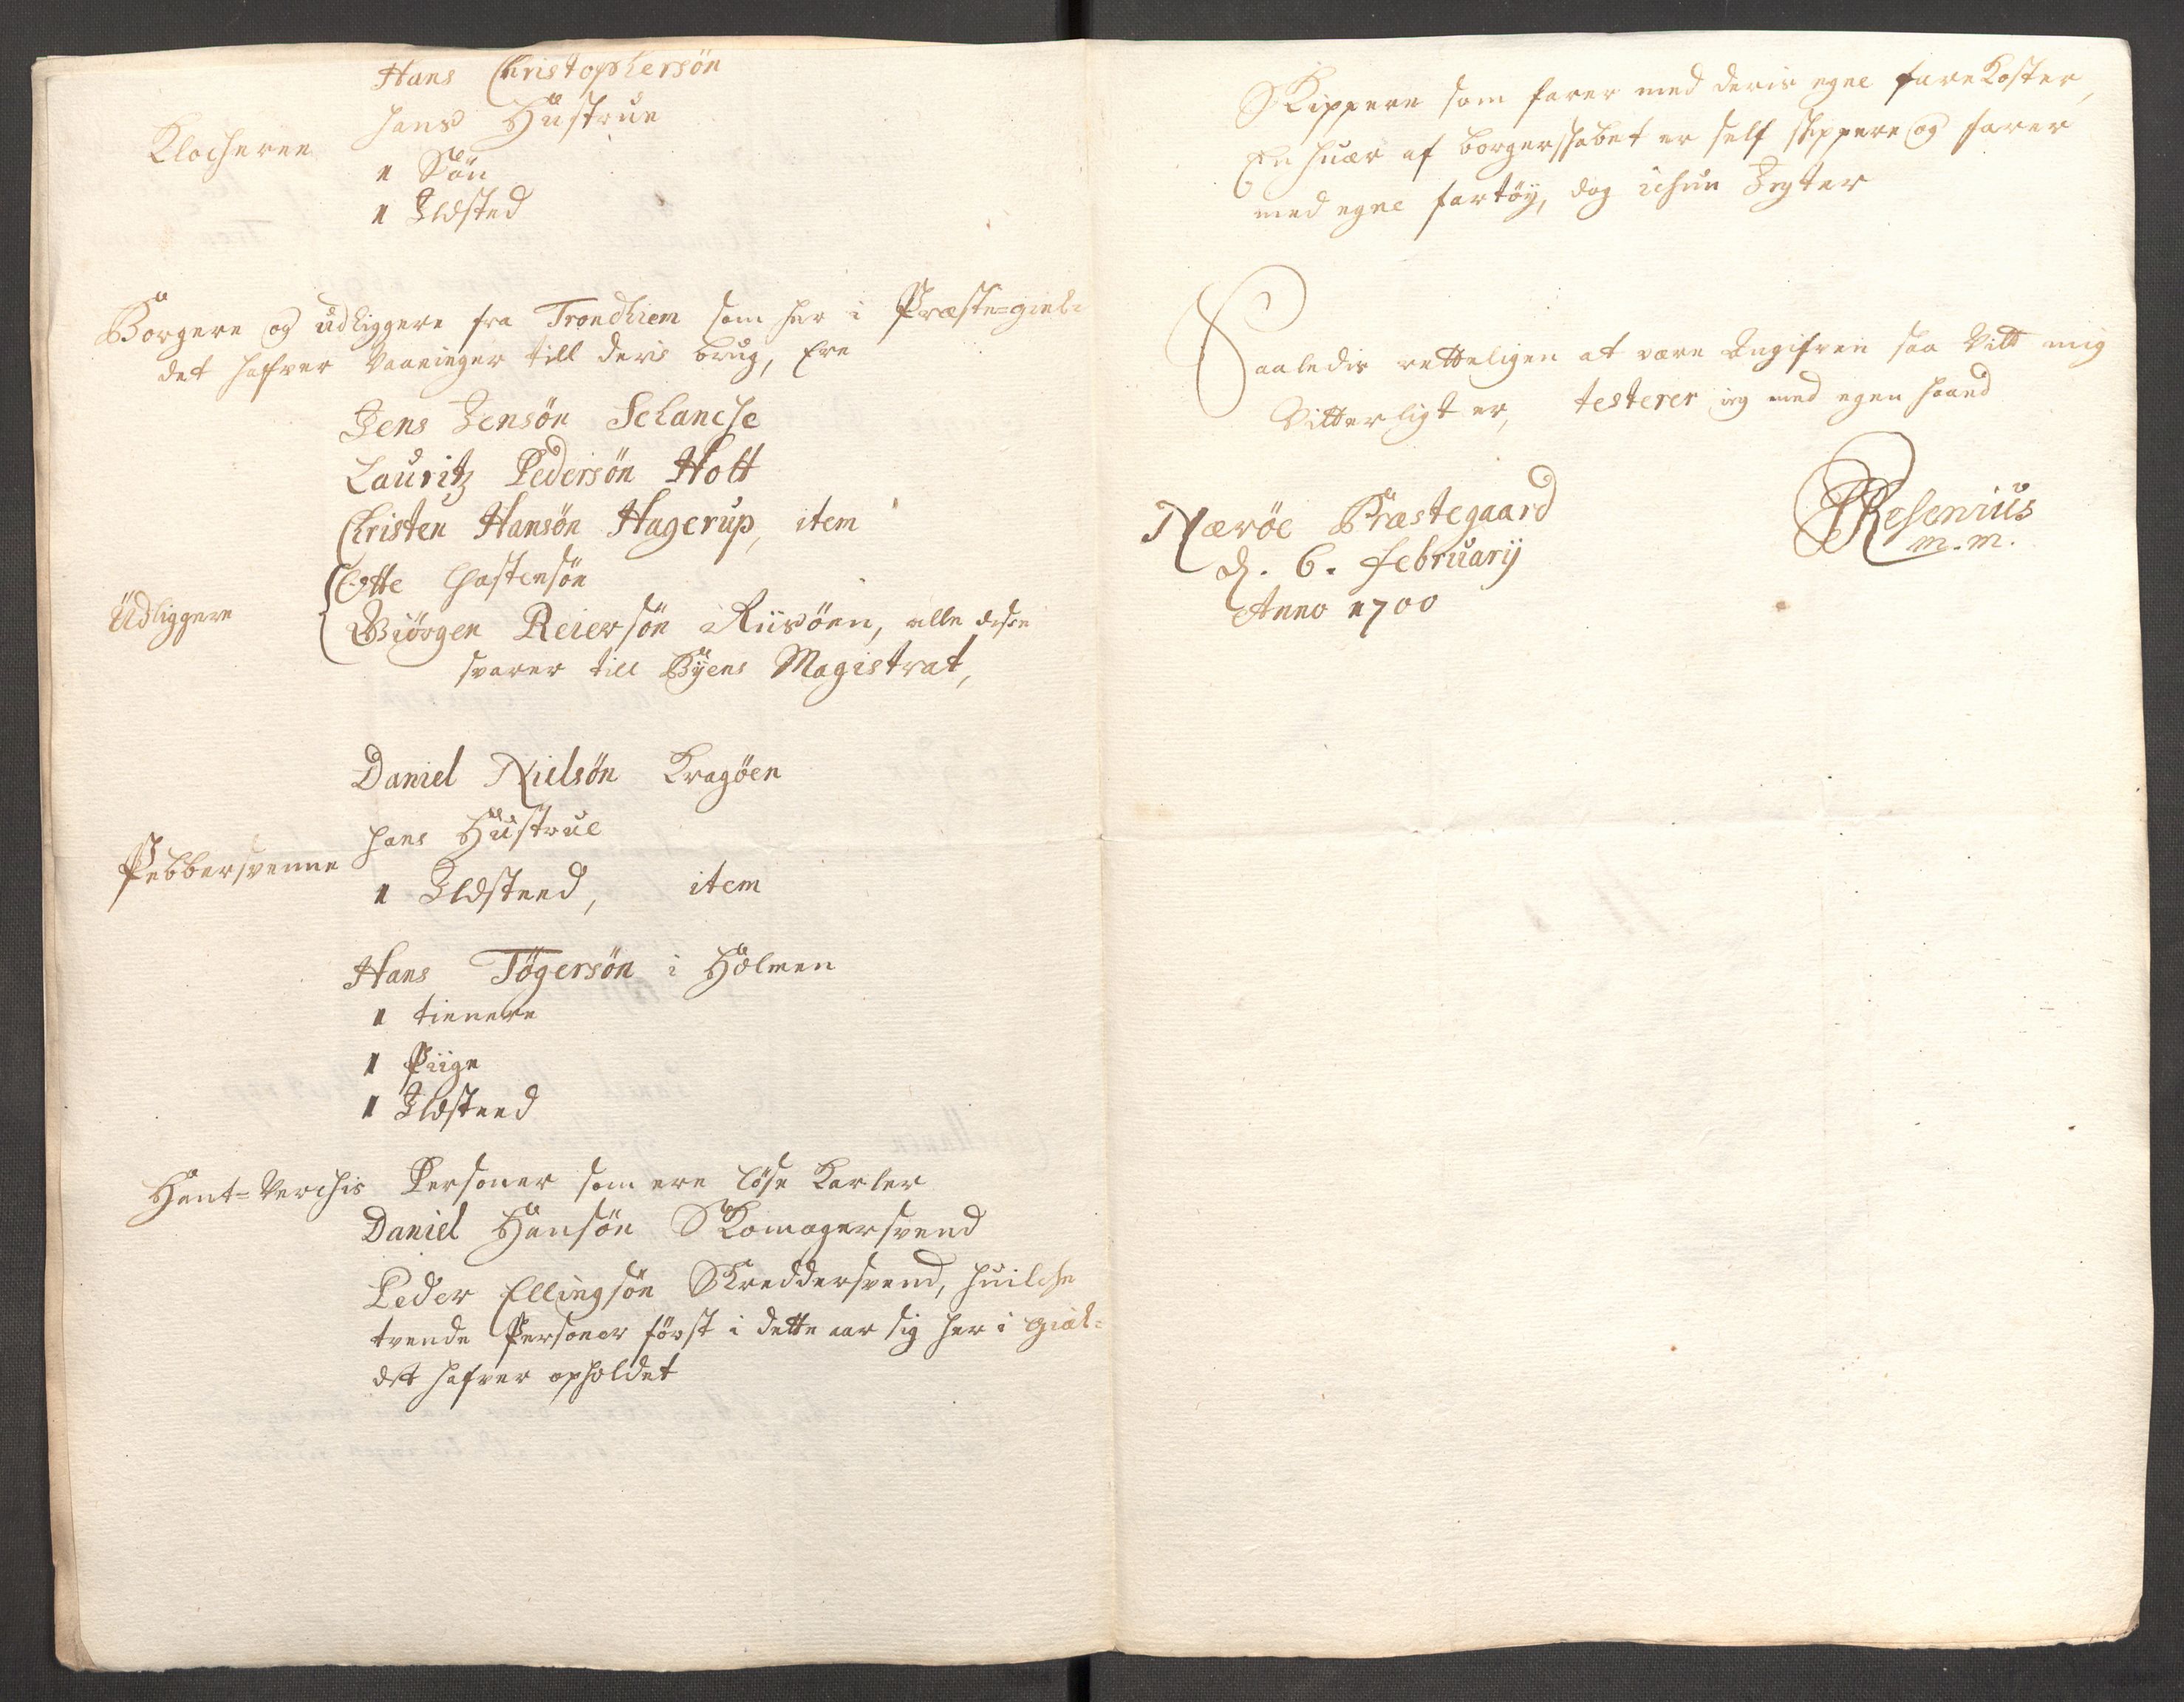 Hans Christophersøn
Klocheren hans Hüstrue
1 Søn
1 Ildsted
Borgere og udliggere fra Trondhiem som her i Præste=giel-
det hafver Vaaninger till deris brug, Ere
Jens Jensøn Selanche
Lauritz Pedersøn Holt
Christen Hansøn Hagerup, item
Otte Chastensøn
Üdliggere Biörgen Reiersøn Riisöen, alle disse
svarer till Byens Magistrat,
Daniel Nielsøn Kragöen
hans Hüstrue
Pebbersvenne
1 Ildsteed, item
Hans Tøgersøn i Holmen
1 tienere
1 Piige
1 Ildsteed
Hant=Verchis Personer som ere løse Karler
Daniel Hansøn Skomagersvend
Peder Ellingsøn Skreddersvend, huilche
tvende Personer først i dette aar sig her i giæl=
det hafver opholdet
Skippere som farer med deris egne farekoster,
En huær af borgerskabet er self skippere og farer
med egne fartøy, dog ichun Jegter
Saaledis retteligen at være Angifven saa Vitt mig
Vitterligt er, testerer ieg med egen haand
Nærøe Præstegaard
d. 6. february
Anno 1700
Resenius
m.m.